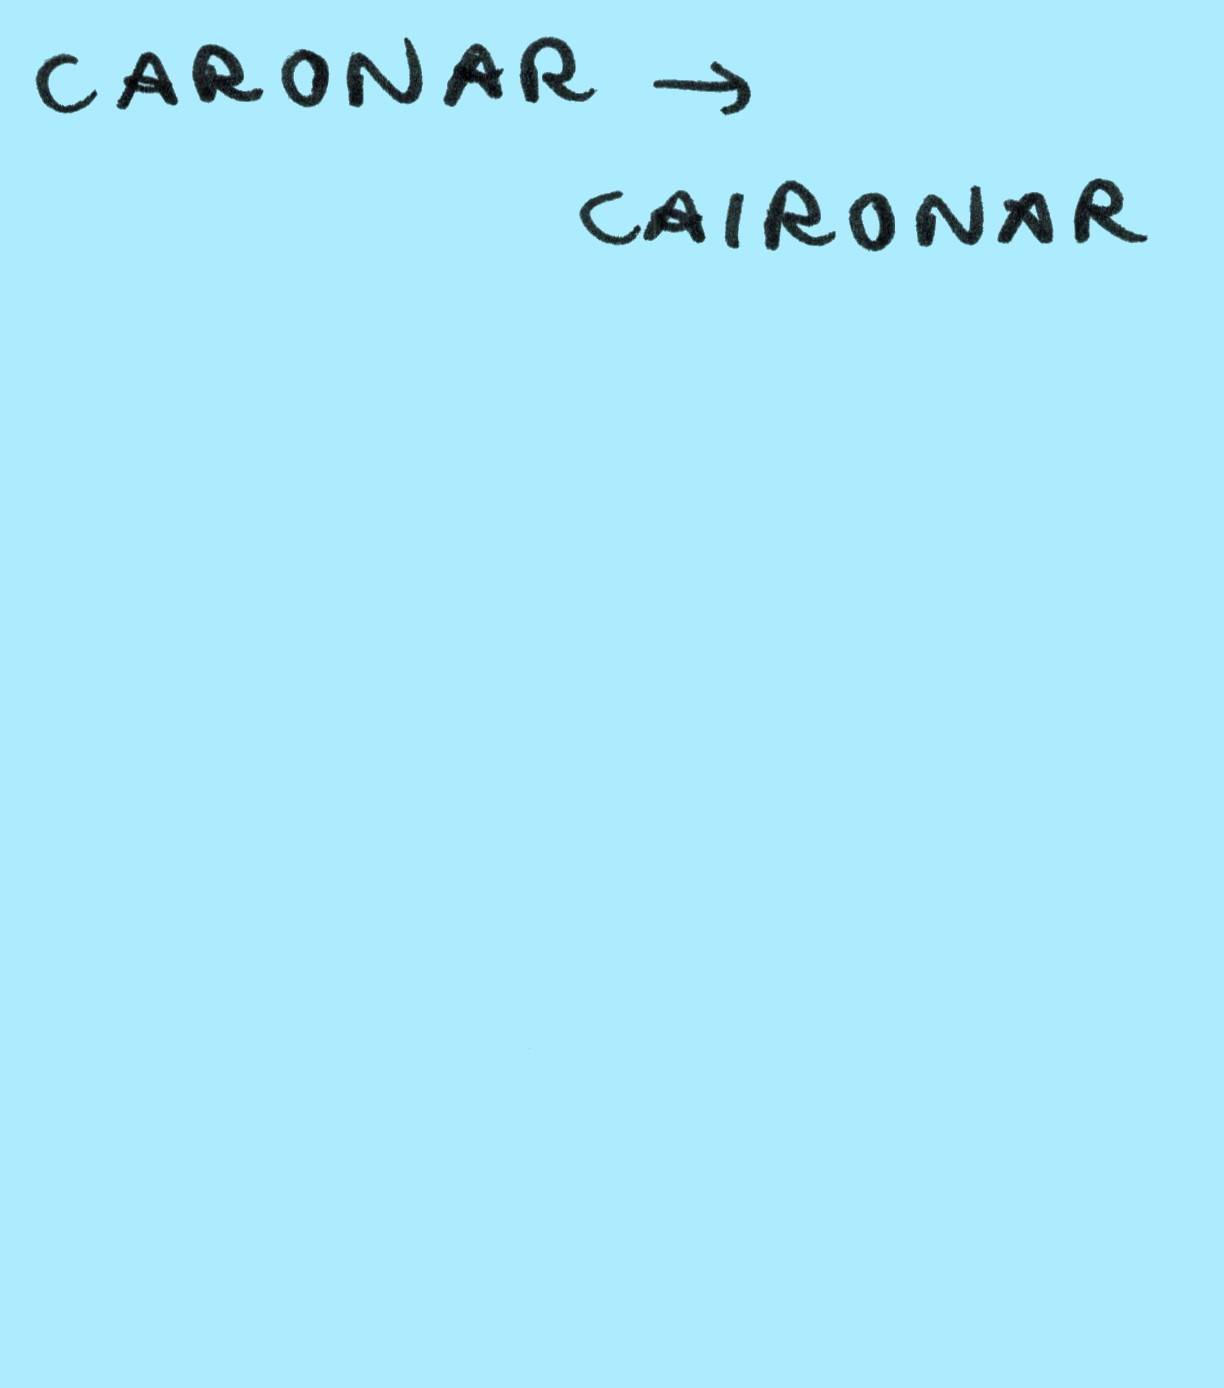 CARONAR →
CAIRONAR